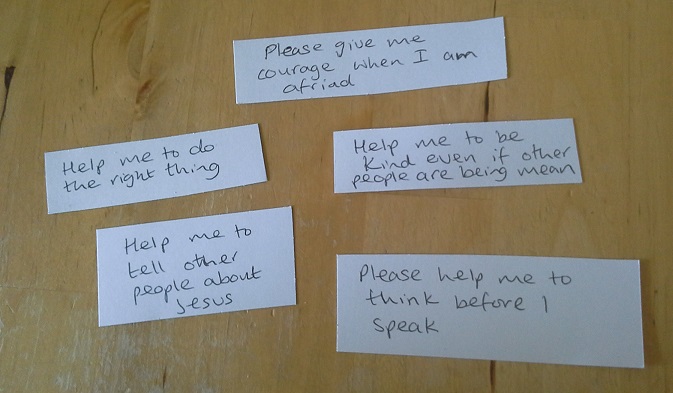 Please give me
courage when I am
afriad
Help me to do
the right thing
Help me to be
Kind even if other
people are being mean
Help me to
tell other
people about
Jesus
Please help me to
think before I
speak